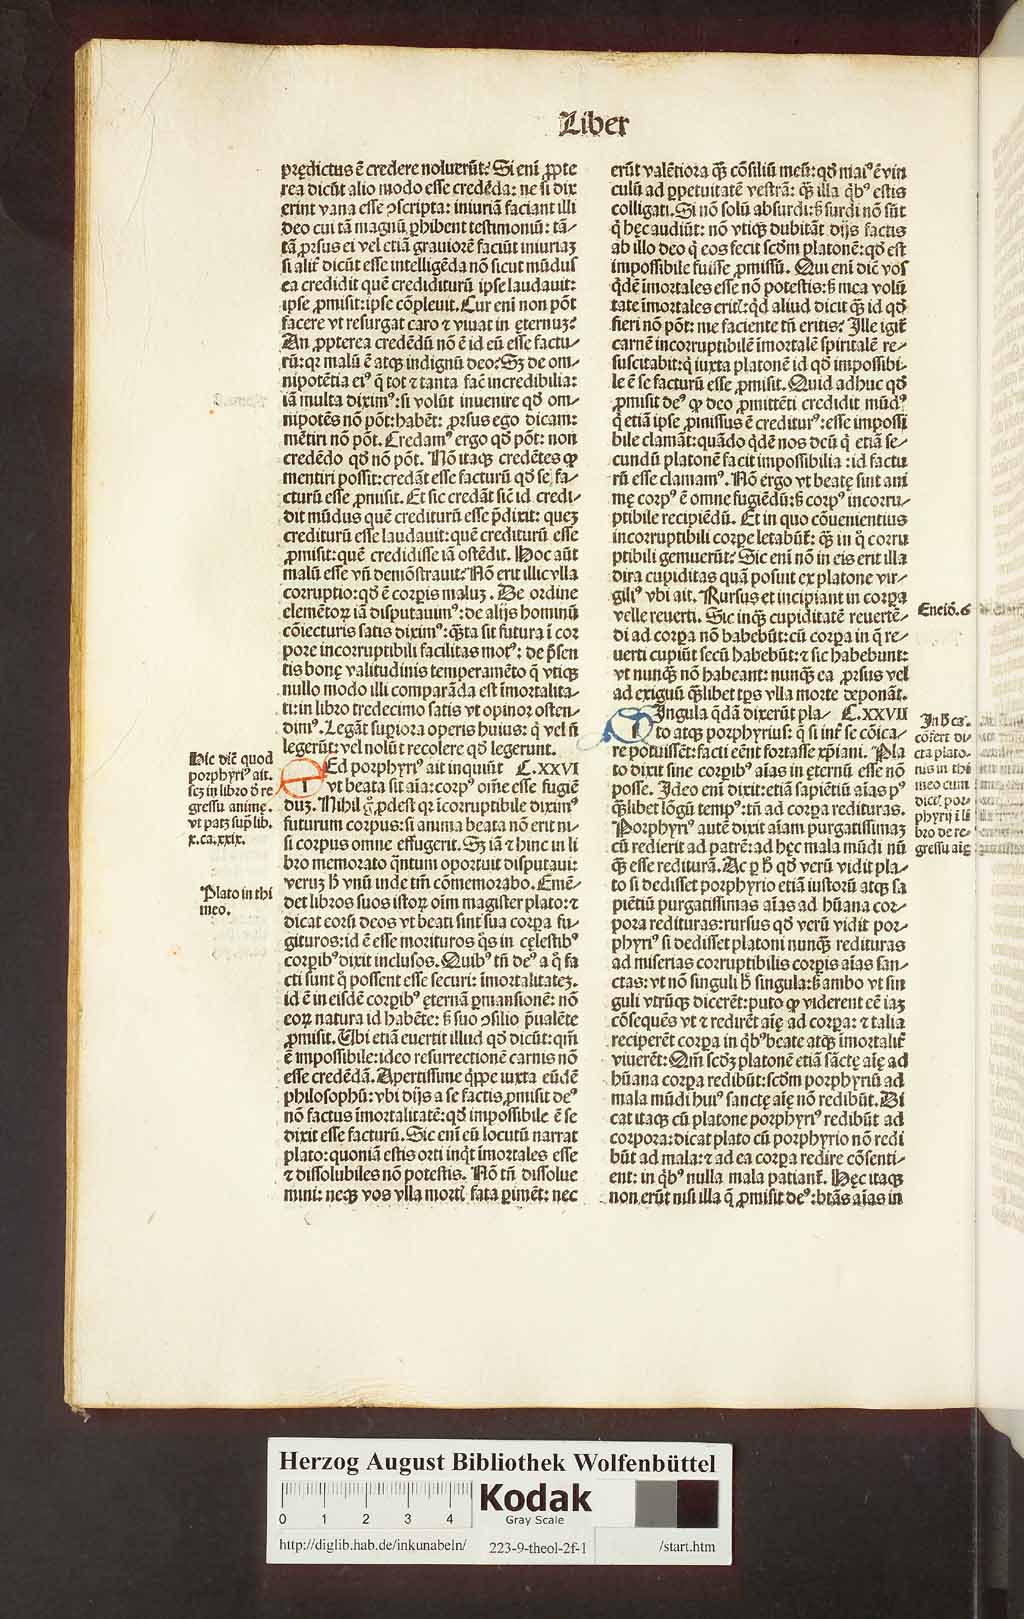 Liber
prędictus ē credere noluerūt? Si enī ꝓpte
rea dicūt alio modo esse credēda: ne si dix
erint vana esse ↄscripta: iniuriā faciant illi
deo cui tā magnū ꝑhibent testimoniū: tā-
tā ꝓrsus ei vel etiā grauiorē faciūt iniuriaꝫ
si alit̄ dicūt esse intelligēda nō sicut mūdus
ea credidit quē crediturū ipse laudauit:
ipse ꝓmisit: ipse cōpleuit. Cur eni non pōt
facere vt resurgat caro ⁊ viuat in ęternuꝫ?
An ꝓpterea credēdū nō ē id eū esse factu-
rū: qꝛ malū ē atqꝫ indignū deo? Sꝫ de om-
nipotētia eiꝰ q̄ tot ⁊ tanta fac̄ incredibilia:
iā multa diximꝰ: si volūt inuenire qd̄ om-
nipotēs nō pōt: habēt: ꝓrsus ego dicam:
mētiri nō pōt. Credamꝰ ergo qd̄ pōt: non
credēdo qd̄ nō pōt. Nō itaqꝫ credētes ꝙ
mentiri possit: credāt esse facturū qd̄ se fa-
cturū esse ꝓmisit. Et sic credāt sic̄ id credi-
dit mūdus quē crediturū esse p̄dixit: queꝫ
crediturū esse laudauit: quē crediturū esse
ꝓmisit: quē credidisse iā ostēdit. Hoc aūt
malū esse vn̄ demōstrauit? Nō erit illic vlla
corruptio: qd̄ ē corꝑis maluꝫ. De ordine
elemētoꝝ iā disputauimꝰ: de alijs hominū
cōiecturis satis diximꝰ: q̄sta sit futura ī cor
pore incorruptibili facilitas motꝰ: de p̄sen
tis bonę valitudinis temperamēto q̄ vtiqꝫ
nullo modo illi comparāda est īmortalita-
ti: in libro tredecimo satis vt opinor osten-
dimꝰ. Legāt suꝑiora operis huius: q̄ vel ñ
legerūt: vel nolūt recolere qd̄ legerunt.
Ed porphyriꝰ ait inquiūt C.XXVI
vt beata sit aīa: corpꝰ om̄e esse fugiē
duꝫ. Nihil g̊ ꝓdest qꝛ īcorruptibile diximꝰ
futurum corpus: si anima beata nō erit ni-
si corpus omne effugerit. Sꝫ iā ⁊ hinc in li
bro memorato q̄ntum oportuit disputaui:
veruꝫ h̄ vnū inde tm̄ cōmemorabo. Emē-
det libros suos istoꝝ oīm magister plato: ⁊
dicat eorū deos vt beati sint sua corꝑa fu-
gituros: id ē esse morituros q̄s in cęlestibꝰ
corꝑibꝰ dixit inclusos. Quibꝰ tn̄ deꝰ a q̊ fa
cti sunt q̊ possent esse securi: īmortalitateꝫ.
id ē in eisdē corꝑibꝰ ęternā ꝑmansionē: nō
eoꝝ natura id habēte: s̄ suo ↄsilio p̄ualēte
ꝓmisit. Ubi etiā euertit illud qd̄ dicūt: qm̄
ē impossibile: ideo resurrectionē carnis nō
esse credēdā. Apertissime q̄ppe iuxta eūdē
philosophū: vbi dijs a se factis ꝓmisit deꝰ
nō factus īmortalitatē: qd̄ impossibile ē se
dixit esse facturū. Sic eni eū locutū narrat
plato: quoniā estis orti inq̄t īmortales esse
⁊ dissolubiles nō potestis. Nō tn̄ dissolue
mini: neqꝫ vos vlla morti fata ꝑimēt: nec
erūt valētiora q̄ꝫ cōsiliū meū: qd̄ maiꝰ ē vin
culū ad ꝑpetuitatē vestrā: q̄ꝫ illa q̄bꝰ estis
colligati. Si nō solū absurdi: s̄ surdi nō sūt
q̄ hęc audiūt: nō vtiqꝫ dubitāt dijs factis
ab illo deo q̄ eos fecit scd̄m platonē: qd̄ est
impossibile fuisse ꝓmissū. Qui eni dic̄ vos
q̄dē īmortales esse nō potestis: s̄ mea volū
tate īmortales eritis: qd̄ aliud dicit q̄ꝫ id qd̄
fieri nō pōt: me faciente tn̄ eritis? Ille igit̄
carnē incorruptibilē īmortalē spiritalē re-
suscitabit: q̄ iuxta platonē id qd̄ impossibi-
le ē se facturū esse ꝓmisit. Quid adhuc qd̄
ꝓmisit deꝰ ꝙ deo ꝓmittēti credidit mūdꝰ
q̄ etiā ipse ꝓmissus ē crediturꝰ: esse impossi
bile clamāt: quādo q̄dē nos deū q̄ etiā se-
cundū platonē facit impossibilia: id factu
rū esse clamamꝰ. Nō ergo vt beatę sint ani
mę corpꝰ ē omne fugiēdū: s̄ corpꝰ incorru-
ptibile recipiēdū. Et in quo cōuenientius
incorruptibili corpe letabūt̄: q̄ꝫ in q̊ corru
ptibili gemuerūt? Sic eni nō in eis erit illa
dira cupiditas quā posuit ex platone vir-
giliꝰ vbi ait. Rursus et incipiant in corꝑa
velle reuerti. Sic inqꝫ cupiditatē reuertē-
di ad corꝑa nō habebūt: cū corꝑa in q̄ re-
uerti cupiūt secū habebūt: ⁊ sic habebunt:
vt nunq̄ꝫ nō habeant: nunq̄ꝫ ea ꝓrsus vel
ad exiguū q̄slibet tp̄s vlla morte deponāt.
Ingula q̄dā dixerūt pla- C.XXVII
to atqꝫ porphyrius: q̄ si int̄ se cōica-
re potuissēt: facti eēnt fortasse xp̄iani. Pla
to dixit sine corꝑibꝰ aīas in ęternū esse nō
posse. Ideo eni dixit: etiā sapiētiū aīas pꝰ
q̄ꝫlibet lōgū tempꝰ: tn̄ ad corꝑa redituras.
Porphyriꝰ autē dixit aīam purgatissimaꝫ
cū redierit ad patrē: ad hęc mala mūdi nū
q̄ꝫ esse redituram. Ac ꝑ h̄ qd̄ verū vidit pla-
to si dedisset porphyrio etiā iustorū atqꝫ sa
piētiū purgatissimas aīas ad hūana cor-
pora redituras: rursus qd̄ verū vidit por-
phyriꝰ si dedisset platoni nunq̄ꝫ redituras
ad miserias corruptibilis corꝑis aīas san-
ctas: vt nō singuli h̄ singula: s̄ ambo vt sin
guli vtrūqꝫ dicerēt: puto ꝙ viderent eē iaꝫ
cōsequēs vt ⁊ redirēt aīę ad corꝑa: ⁊ talia
reciperēt corꝑa in q̄bꝰ beate atqꝫ īmortalit̄
viuerēt: Qm̄ scd̄ꝫ platonē etiā sāctę aīę ad
hūana corꝑa redibūt: scd̄m porphyriū ad
mala mūdi huiꝰ sanctę aīę nō redibūt. Di
cat itaqꝫ cū platone porphyriꝰ redibūt ad
corpora: dicat plato cū porphyrio nō redi
būt ad mala: ⁊ ad ea corꝑa redire cōsenti-
ent: in q̄bꝰ nulla mala patiant̄. Hęc itaqꝫ
non erūt nisi illa q̄ ꝓmisit deꝰ: btās aīas in
Hic dic̄ quod
porphyriꝰ ait.
scꝫ in libro d̄ re
gressu anime.
vt patꝫ supͣ lib.
x. ca. xxix.
Plato in thi
meo.
Eneid̄. 6
In h̄ ca.
cōfert di-
cta plato-
nis in thi
meo cum
dict. por-
phyrij ī li
bro de re-
gressu aīę
Herzog August Bibliothek Wolfenbüttel
0 1 2 3 4
Kodak
Gray Scale
http://diglib.hab.de/inkunabeln/ 223-9-theol-2f-1 /start.htm